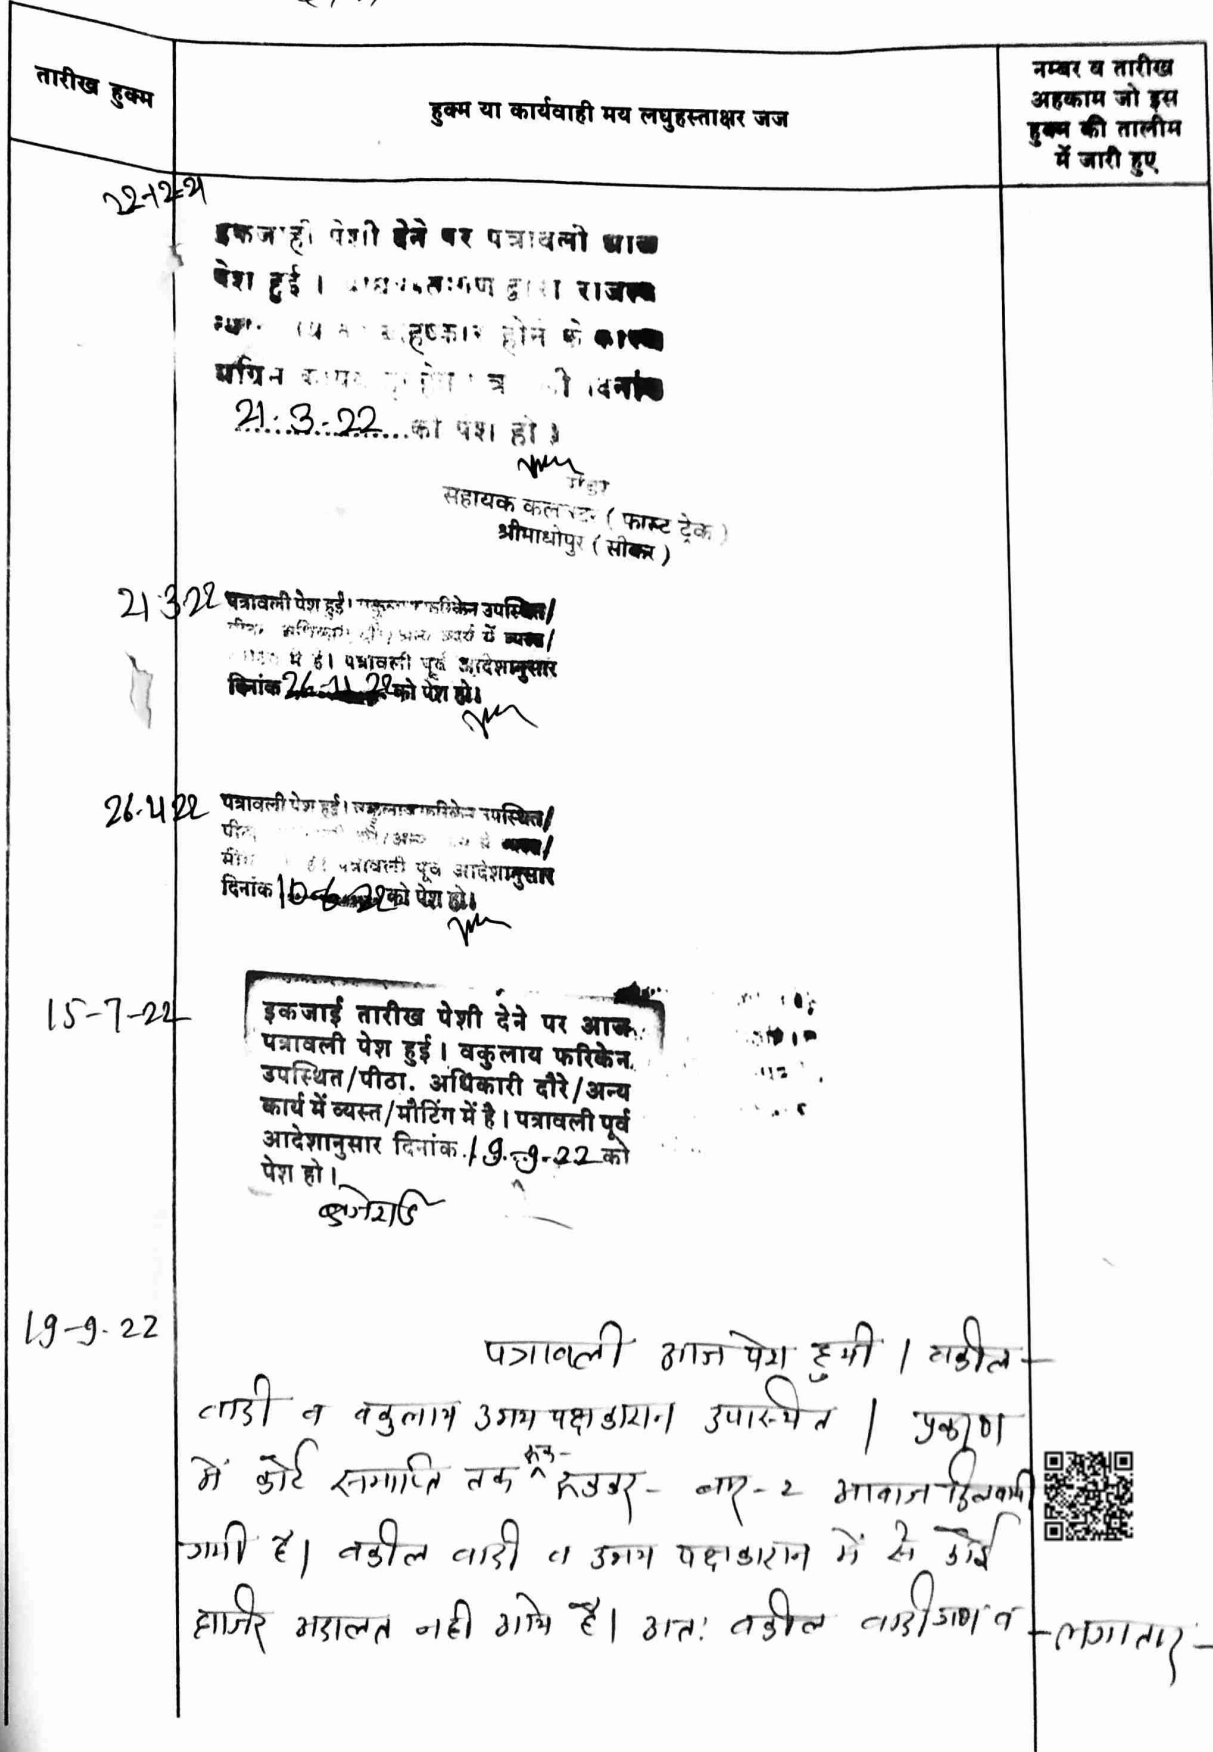 तारीख हुक्म
हुक्म या कार्यवाही मय लघुहस्ताक्षर जज
नम्बर व तारीख
अहकाम जो इस
हुक्म की तालीम
में जारी हुए
22-12-21
इकजाही पेशी देने पर पत्रावली आज
पेश हुई । द्वारा राजस्व
होने के कारण
दिनांक
21-3-22 को पेश हो ।
सहायक कलक्टर ( फास्ट ट्रेक )
श्रीमाधोपुर ( सीकर )
21-3-22
पत्रावली पेश हुई। वकुलाय फरिकेन उपस्थित/
कार्य में व्यस्त/
में है। पत्रावली पूर्व आदेशानुसार
दिनांक 26-4-22 को पेश हो।
26-4-22
पत्रावली पेश हुई। वकुलाय फरिकेन उपस्थित/
व्यस्त/
है। पत्रावली पूर्व आदेशानुसार
दिनांक को पेश हो।
15-7-22
इकजाई तारीख पेशी देने पर आज
पत्रावली पेश हुई। वकुलाय फरिकेन
उपस्थित/पीठा. अधिकारी दौरे/अन्य
कार्य में व्यस्त/मीटिंग में है। पत्रावली पूर्व
आदेशानुसार दिनांक 19-9-22 को
पेश हो।
19-9-22
पत्रावली आज पेश हुयी । वकील
वादी व वकुलाय उभय पक्षकारान उपस्थित । प्रकरण
में कोर्ट समाप्ति तक रूक- रूककर बार-2 आवाज दिलवायी
गयी है। वकील वादी व उभय पक्षकारान में से कोई
हाजिर अदालत नही आये है। अतः वकील वादीगण व
-लगातार-